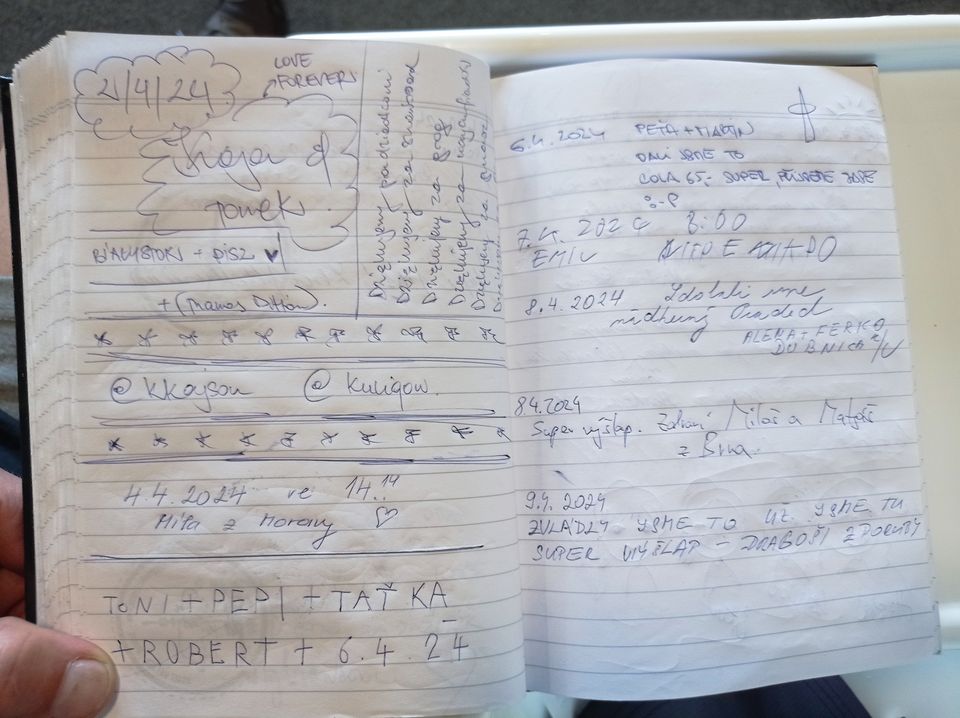 21/4/24
LOVE
FOREVER!
Kaja &
Tomek.
BIAŁYSTOK + PISZ
+ (Thanos Ditton).
Dziękujemy
Dziękujemy za
Dziękujemy za grog
Dziękujemy za
Dziękujemy za
@kkajson @kuligow.
4.4.2024 ve 14.14
Míla z Moravy ♡
TONI + PEPI + TAŤKA
+ ROBERT + 6.4.24
6.4.2024 PEŤA + MARTIN
DALI JSME TO
COLA 65,- SUPER, PŘIJDETE ZASE
:-P
7.4. 2024 8:00
EMIL
8.4.2024 Zdolali sme
nádherný Praděd
ALENA + FERKO
DUBNICA n/V
8.4.2024
Super výšlap. Zdraví Miloš a Matyáš
z Brna.
9.4.2024
ZVLÁDLY JSME TO UŽ JSME TU
SUPER VÝŠLAP - DRAGOŠI Z PORUBY